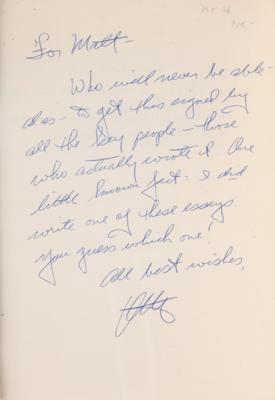 For Matt-
Who will never be able-
alas- to get this signed by
all the key people-those
who actually wrote it. One
little known fact: I did
write one of these essays
you guess which one!
All best wishes,